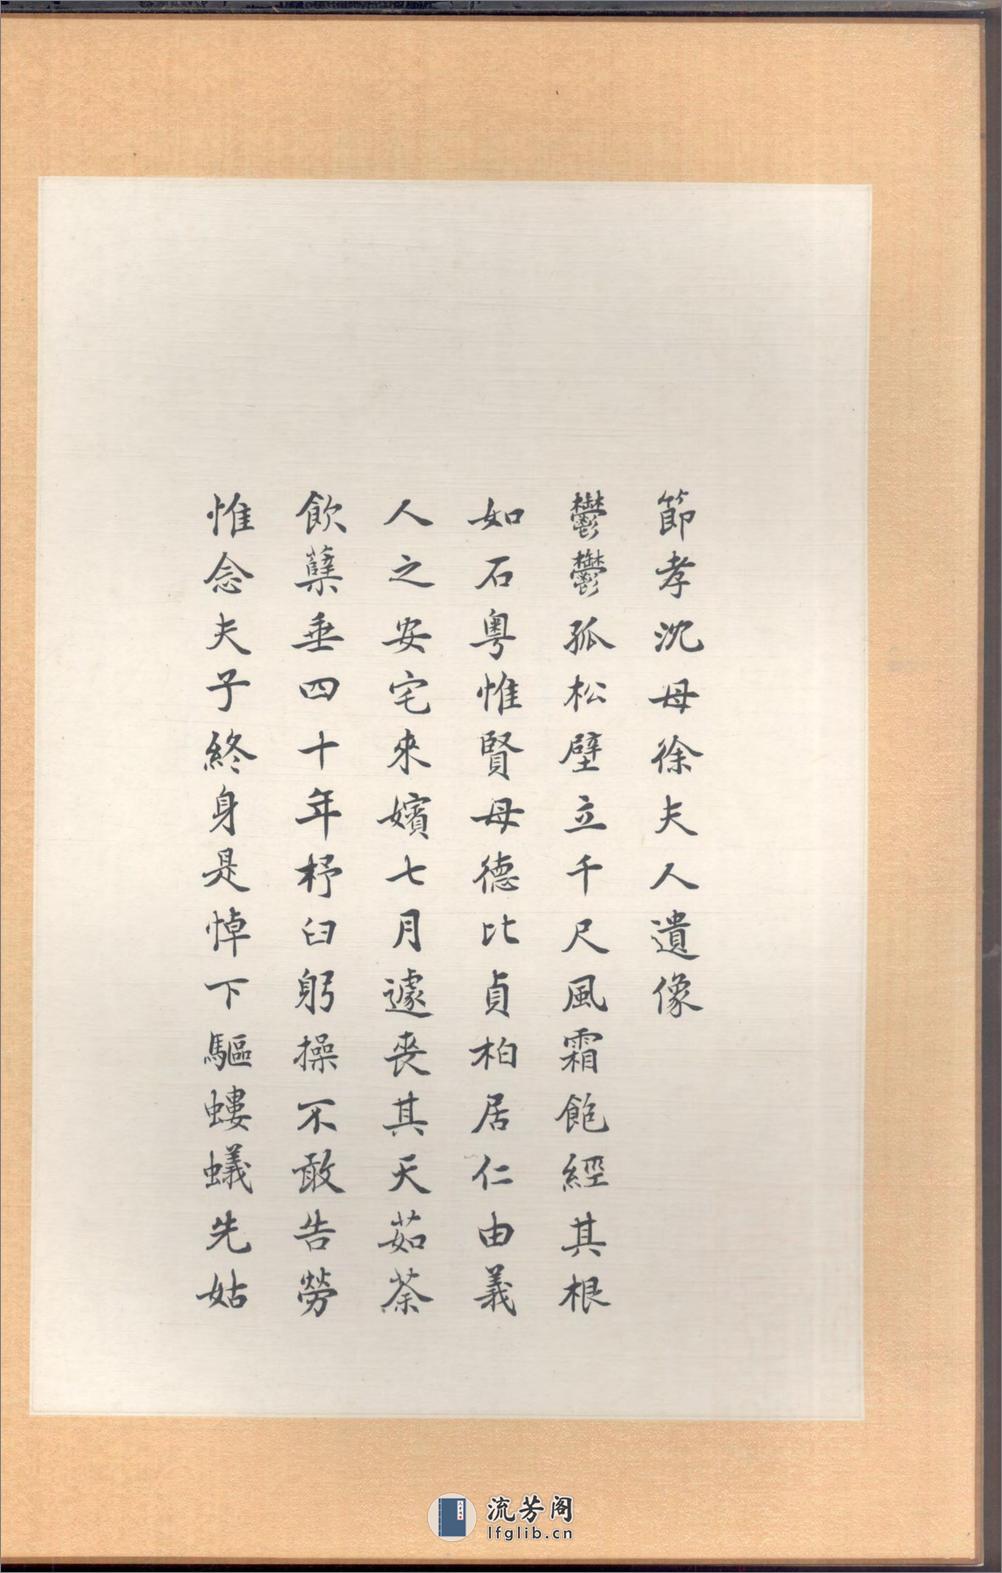 節孝沈母徐夫人遺像
鬱鬱孤松壁立千尺風霜飽經其根
如石粵惟賢母德比貞柏居仁由義
人之安宅來嬪七月遽喪其天茹荼
飲蘗垂四十年杼臼躬操不敢告勞
惟念夫子終身是悼下驅螻蟻先姑
流芳阁
lfglib.cn